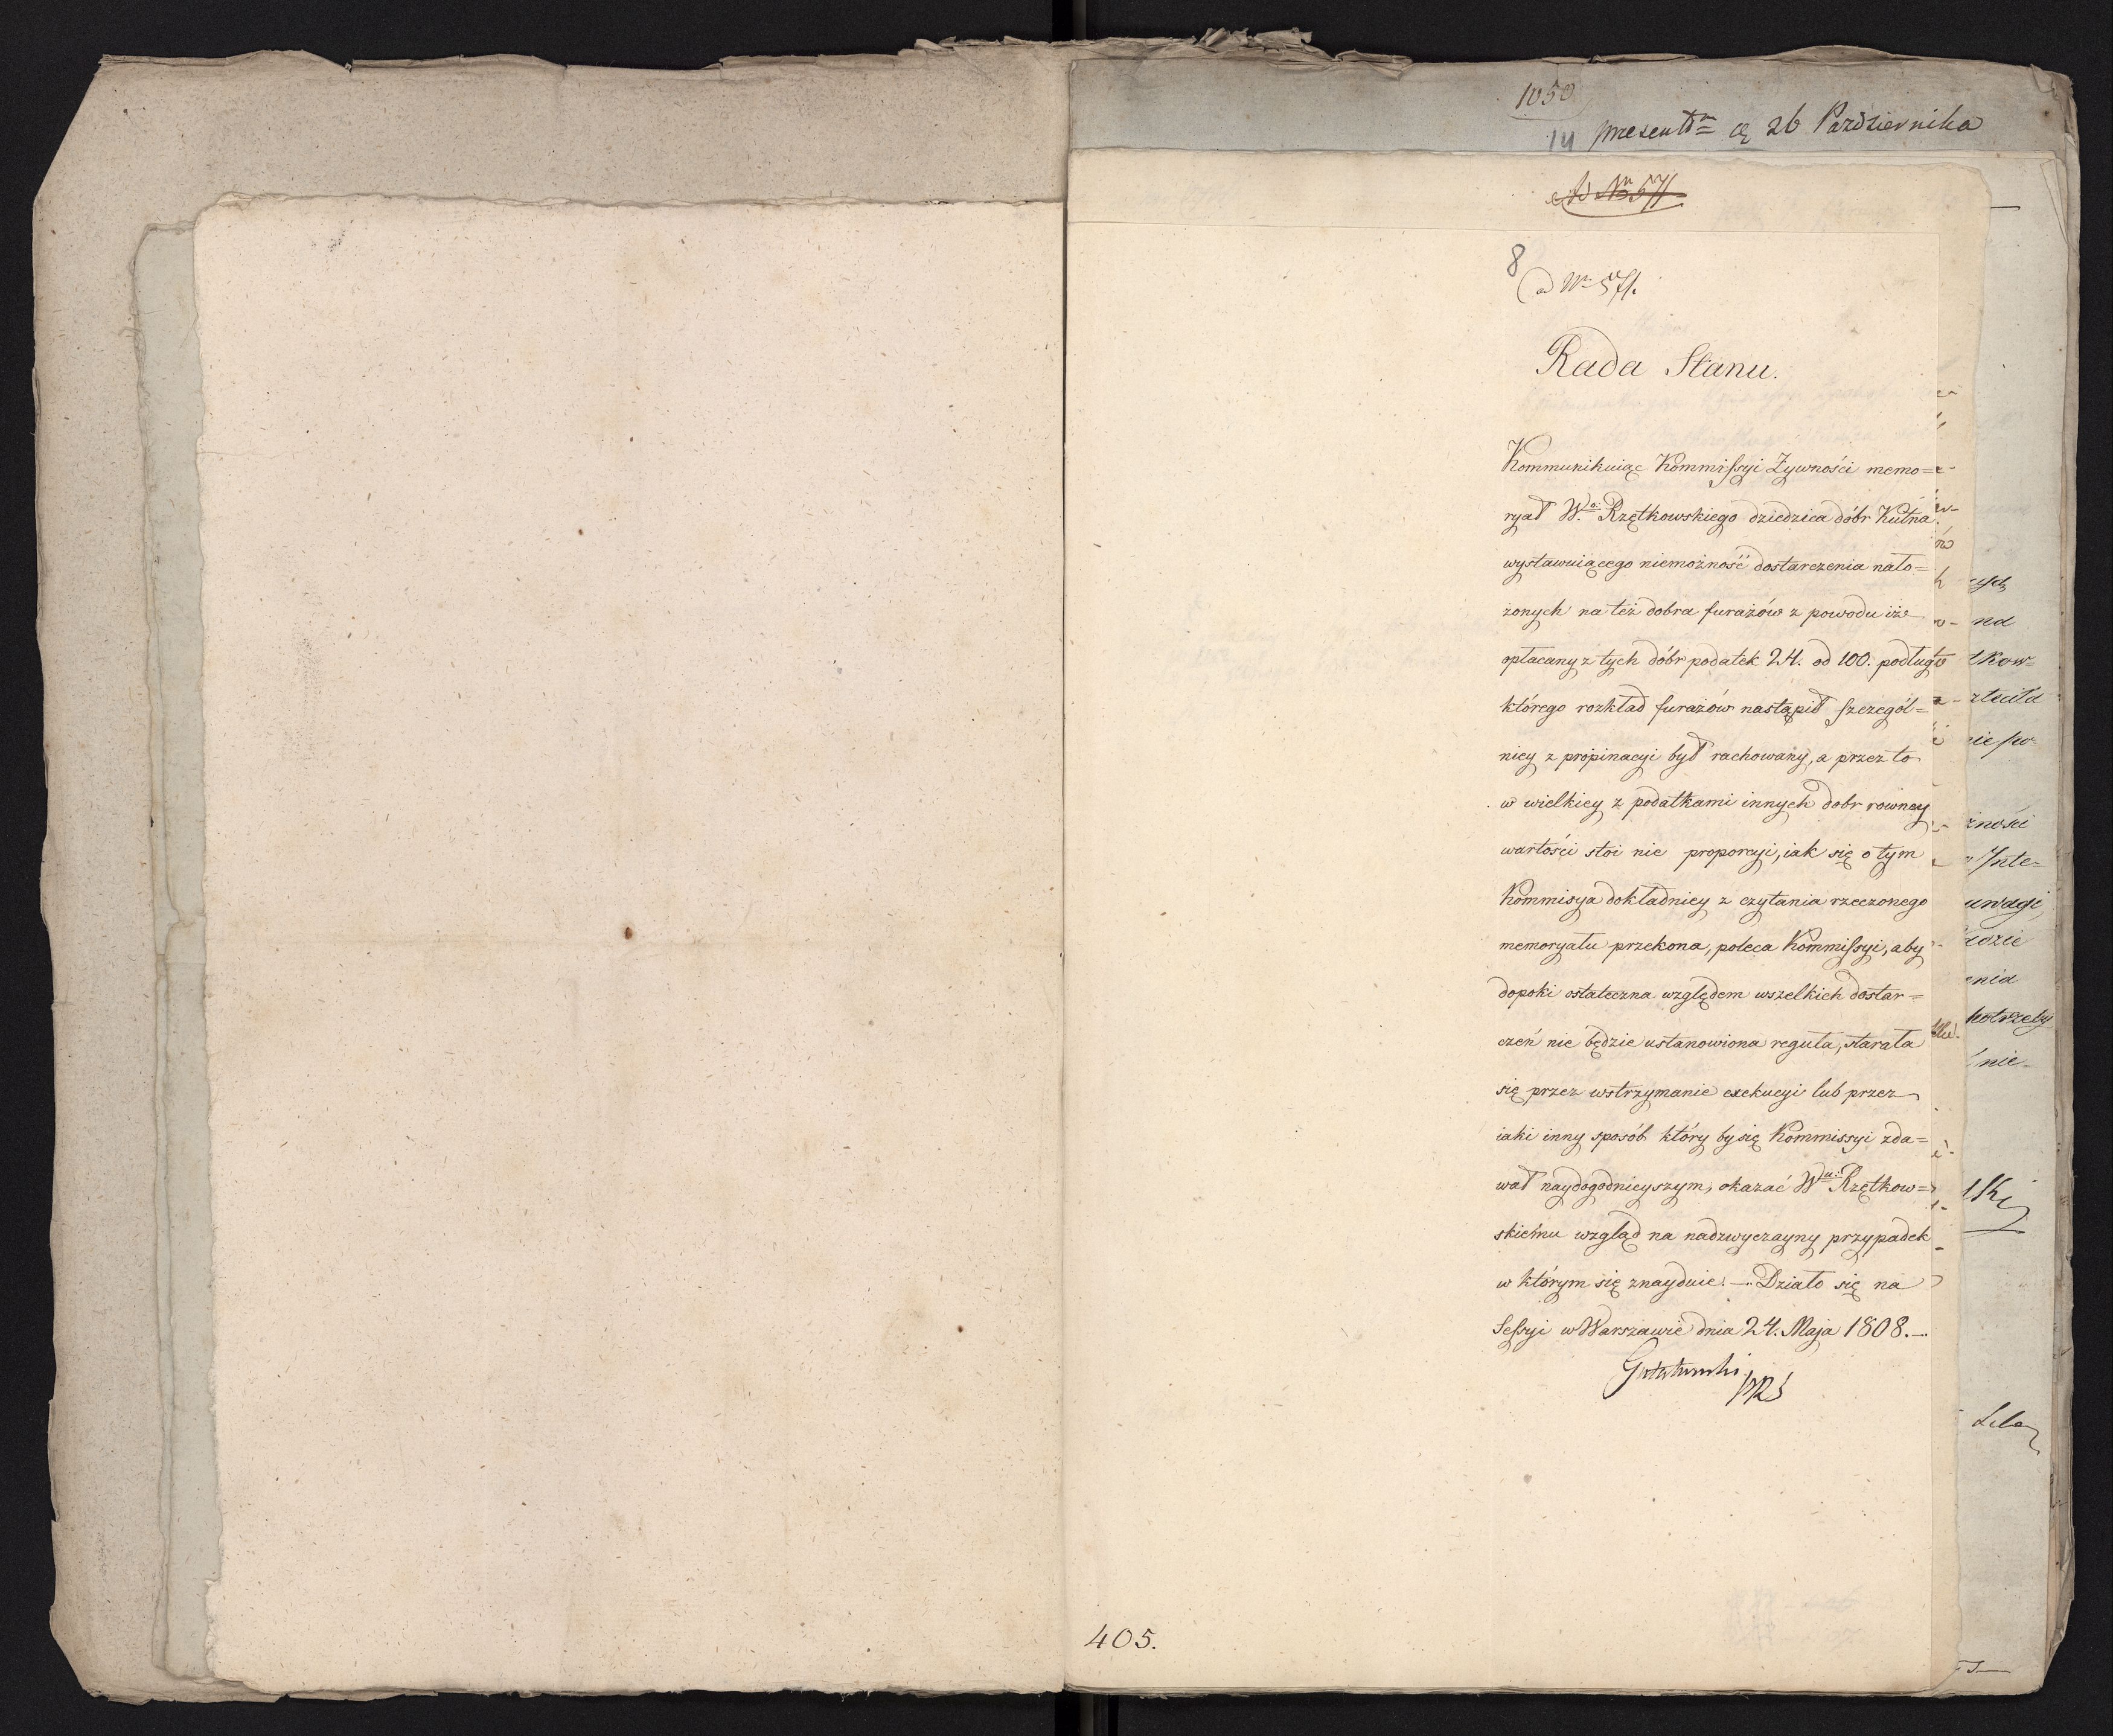 1050
14 presentm 26 Pazdziernika
Ad Nm 571
8
ad Nm 571.
Rada Stanu.
Kommunikuiąc Kommissyi Żywności memo=
ryał W.o: Rzętkowskiego dziedzica dóbr Kutna
wystawuiącego niemożność dostarczenia nało=
żonych na też dobra furażów z powodu iż
opłacany z tych dóbr podatek 24. od 100. podług
którego rozkład furażów nastąpił szczegól=
niey z propinacyi był rachowany, a przez to
w wielkiey z podatkami innych dobr rowney
wartości stoi nie proporcyi, iak się o tym
Kommisya dokładniey z czytania rzeczonego
memoryału przekona, poleca Kommissyi, aby
dopoki ostateczna względem wszelkich dostar=
czeń nie będzie ustanowiona reguła, starała
się przez wstrzymanie exekucyi lub przez
iaki inny sposób który by się Kommissyi zda=
wał naydogodnieyszym, okazać Wu: Rzętkow=
skiemu wzgląd na nadzwyczayny przypadek
w którym się znayduie. — Działo się na
Sessyi w Warszawie dnia 24. Maja 1808. —
Gutakowski
PRS
405.